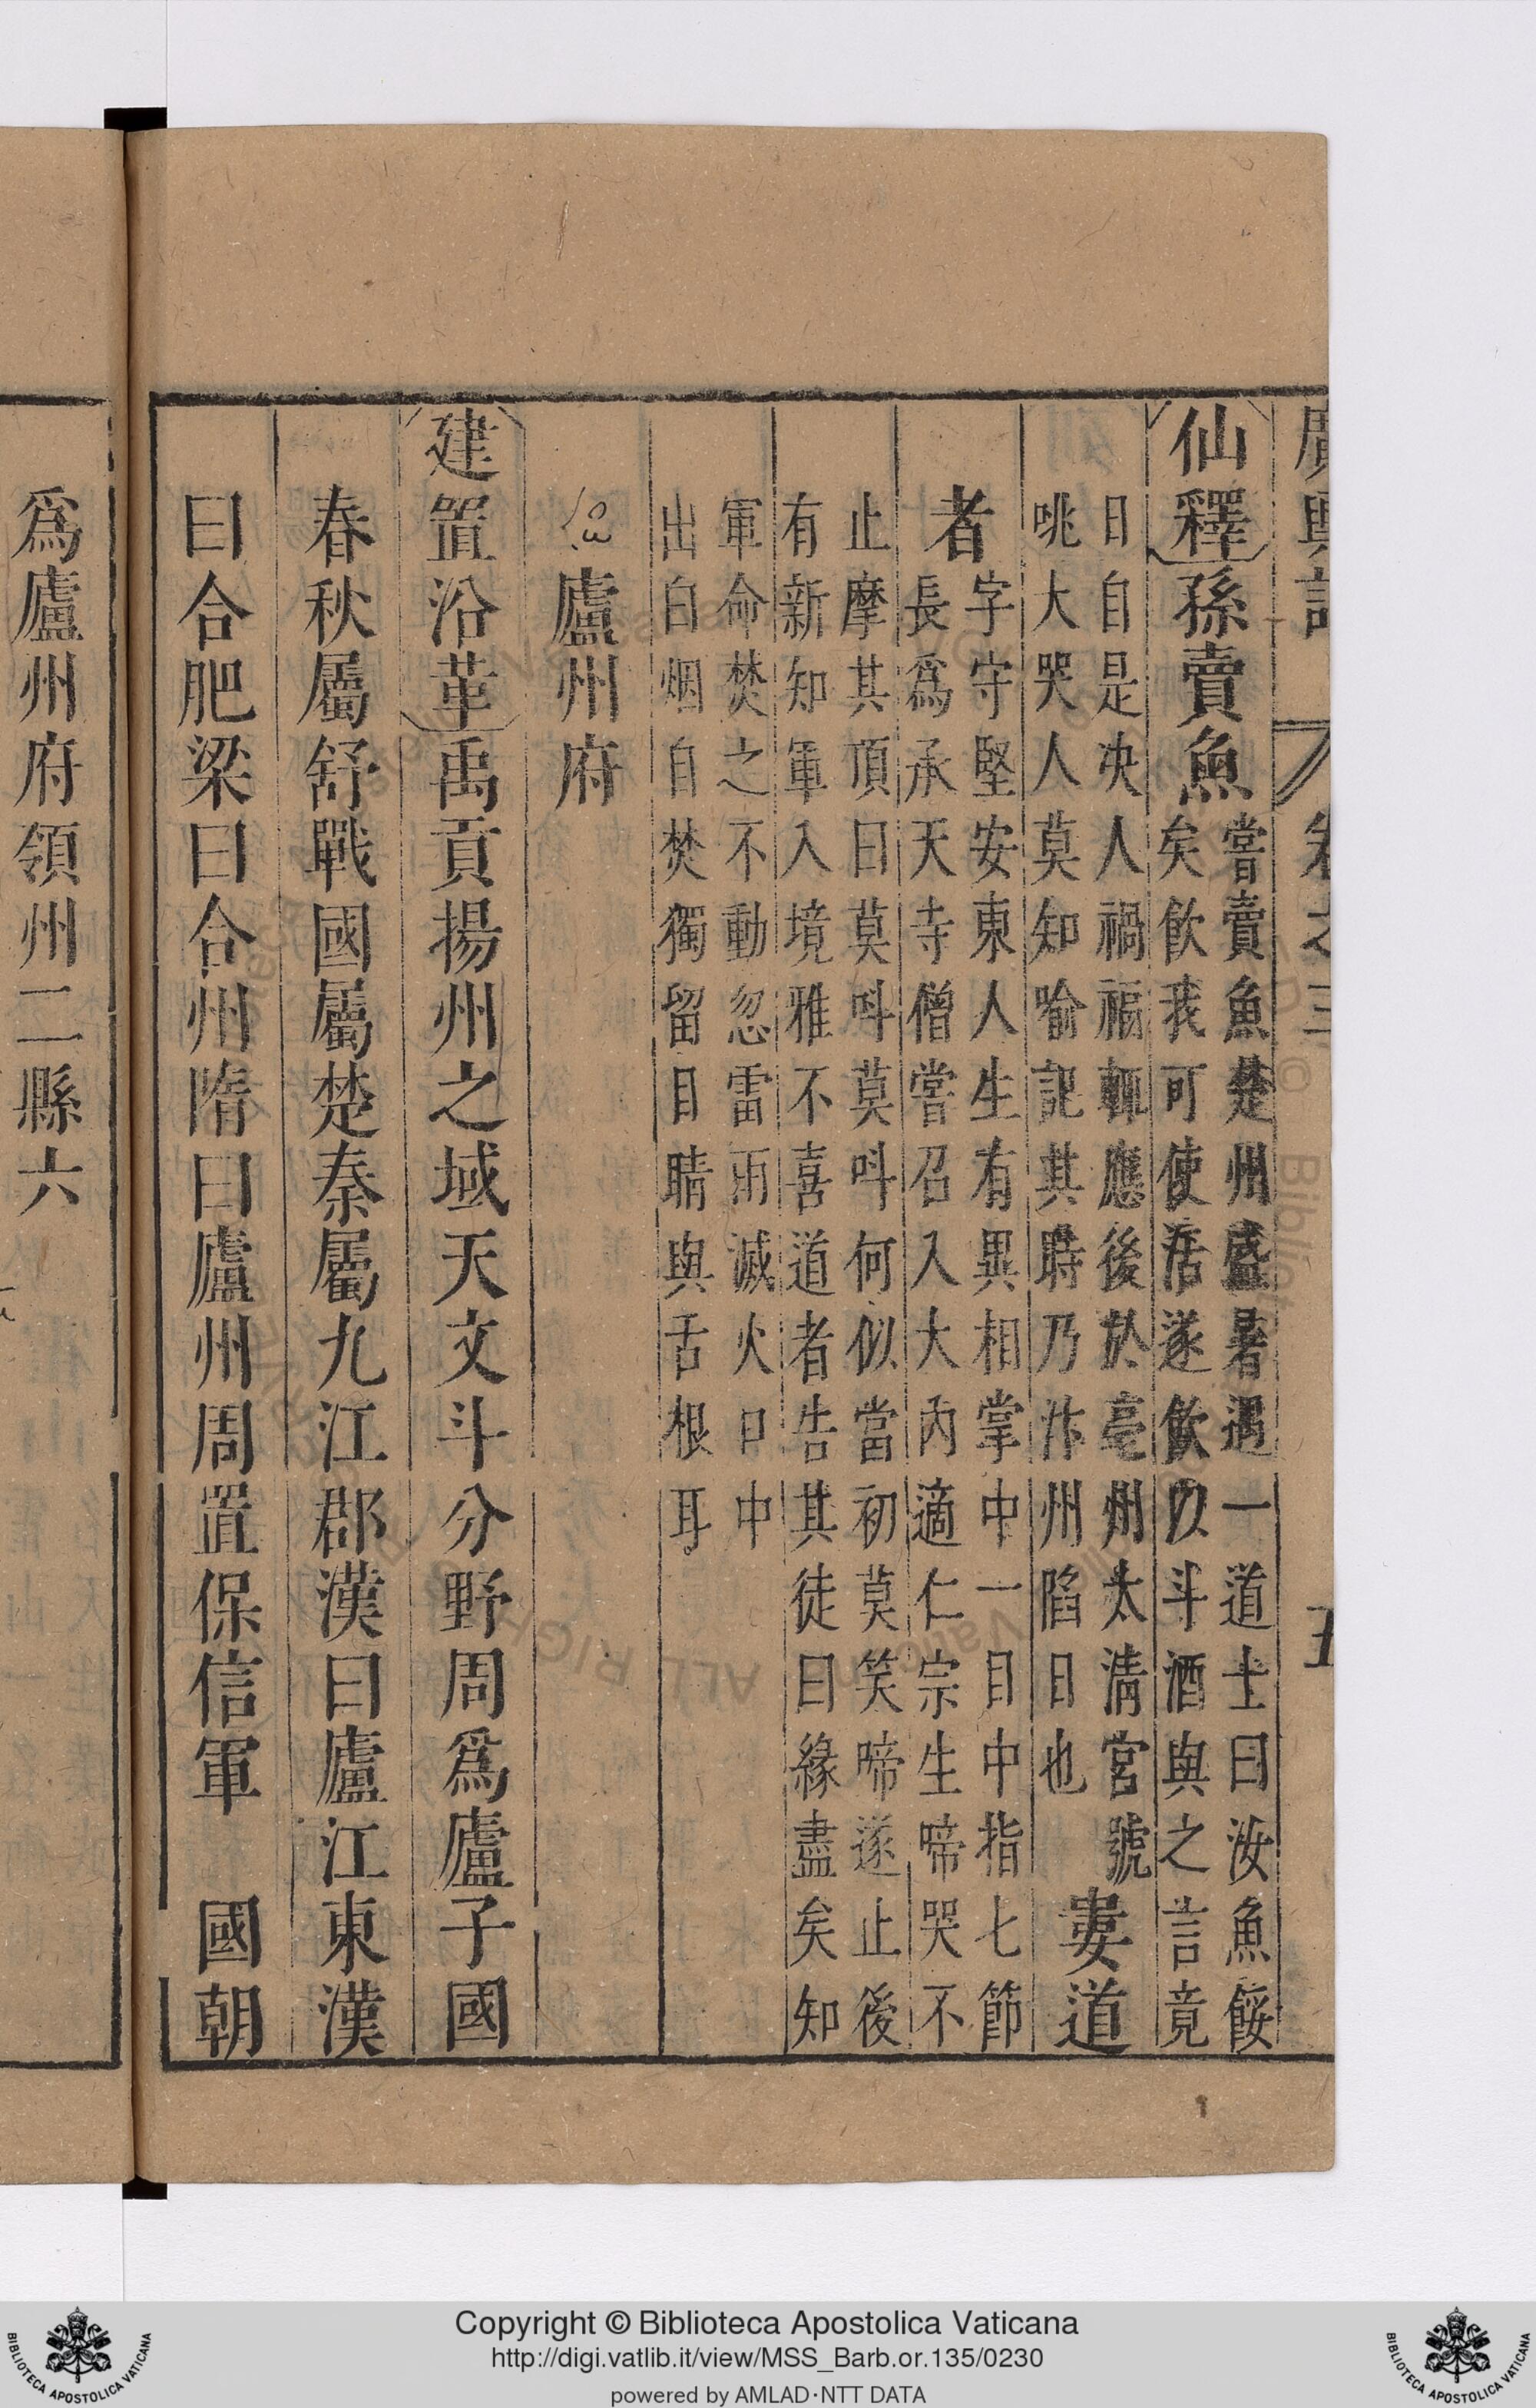 廣輿記 卷之三 五
仙釋孫賣魚嘗賣魚楚州盛暑遇一道士曰汝魚餒
矣飲我可使活遂飲以斗酒與之言竟
日自是决人禍福輒應後於亳州太淸宮號
咷大哭人莫知喻記其時乃汴州陷日也
婁道
者字守堅安東人生有異相掌中一目中指七節
長爲承天寺僧嘗召入大內適仁宗生啼哭不
止摩其頂曰莫叫莫叫何似當初莫笑啼遂止後
有新知軍入境雅不喜道者告其徒曰緣盡矣知
軍命焚之不動忽雷雨滅火口中
出白烟自焚獨留目睛與舌根耳
廬州府
建置沿革禹貢揚州之域天文斗分野周爲廬子國
春秋屬舒戰國屬楚秦屬九江郡漢曰廬江東漢
曰合肥梁曰合州隋曰廬州周置保信軍 國朝
爲廬州府領州二縣六
Copyright © Biblioteca Apostolica Vaticana
http://digi.vatlib.it/view/MSS_Barb.or.135/0230
powered by AMLAD·NTT DATA
BIBLIOTECA APOSTOLICA VATICANA
BIBLIOTECA APOSTOLICA VATICANA